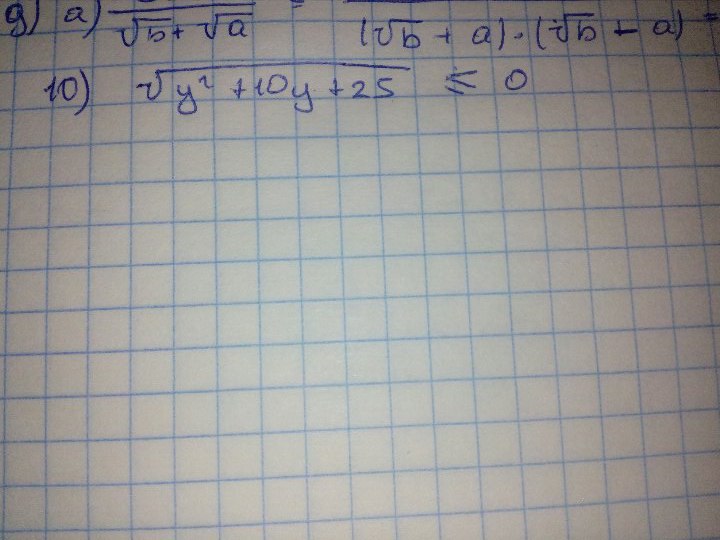 9) a) / √b + √a = (√b + a) · (√b - a) =
10) √y² + 10y + 25 ≤ 0